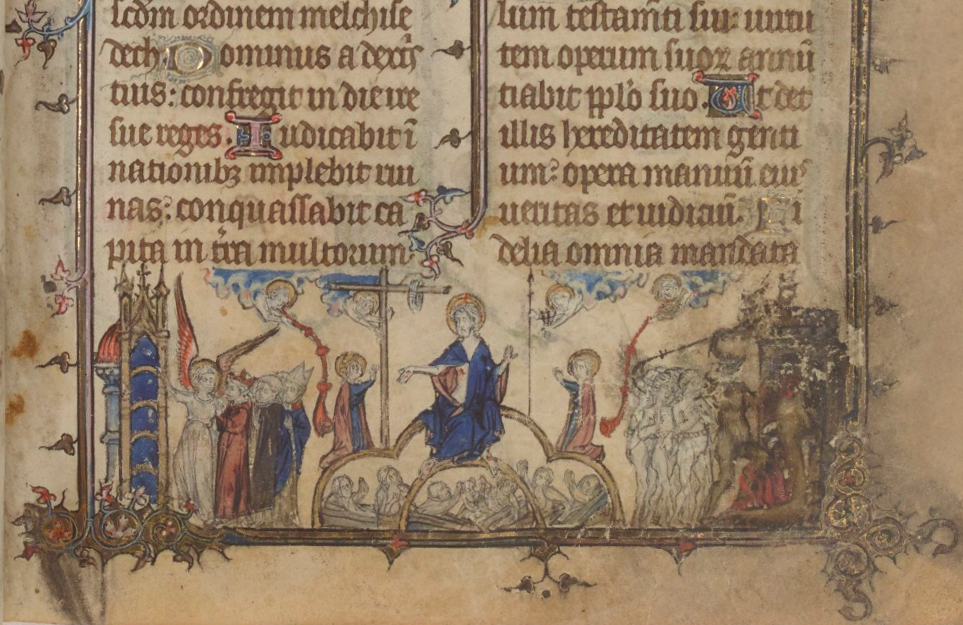 scdm ordinem melchise
dech Dominus a dextris
tuis: confregit in die ire
sue reges Iudicabit ī
nationibꝫ implebit rui
nas: conquassabit ca
pita in tra multorum
sum testam̄ti sui: uirtu
tem operum suoꝝ annū
tiabit pplo suo Ut det
illis hereditatem genti
um: opera manuū eius
ueritas et iudiciū. Fi
delia omnia mandata